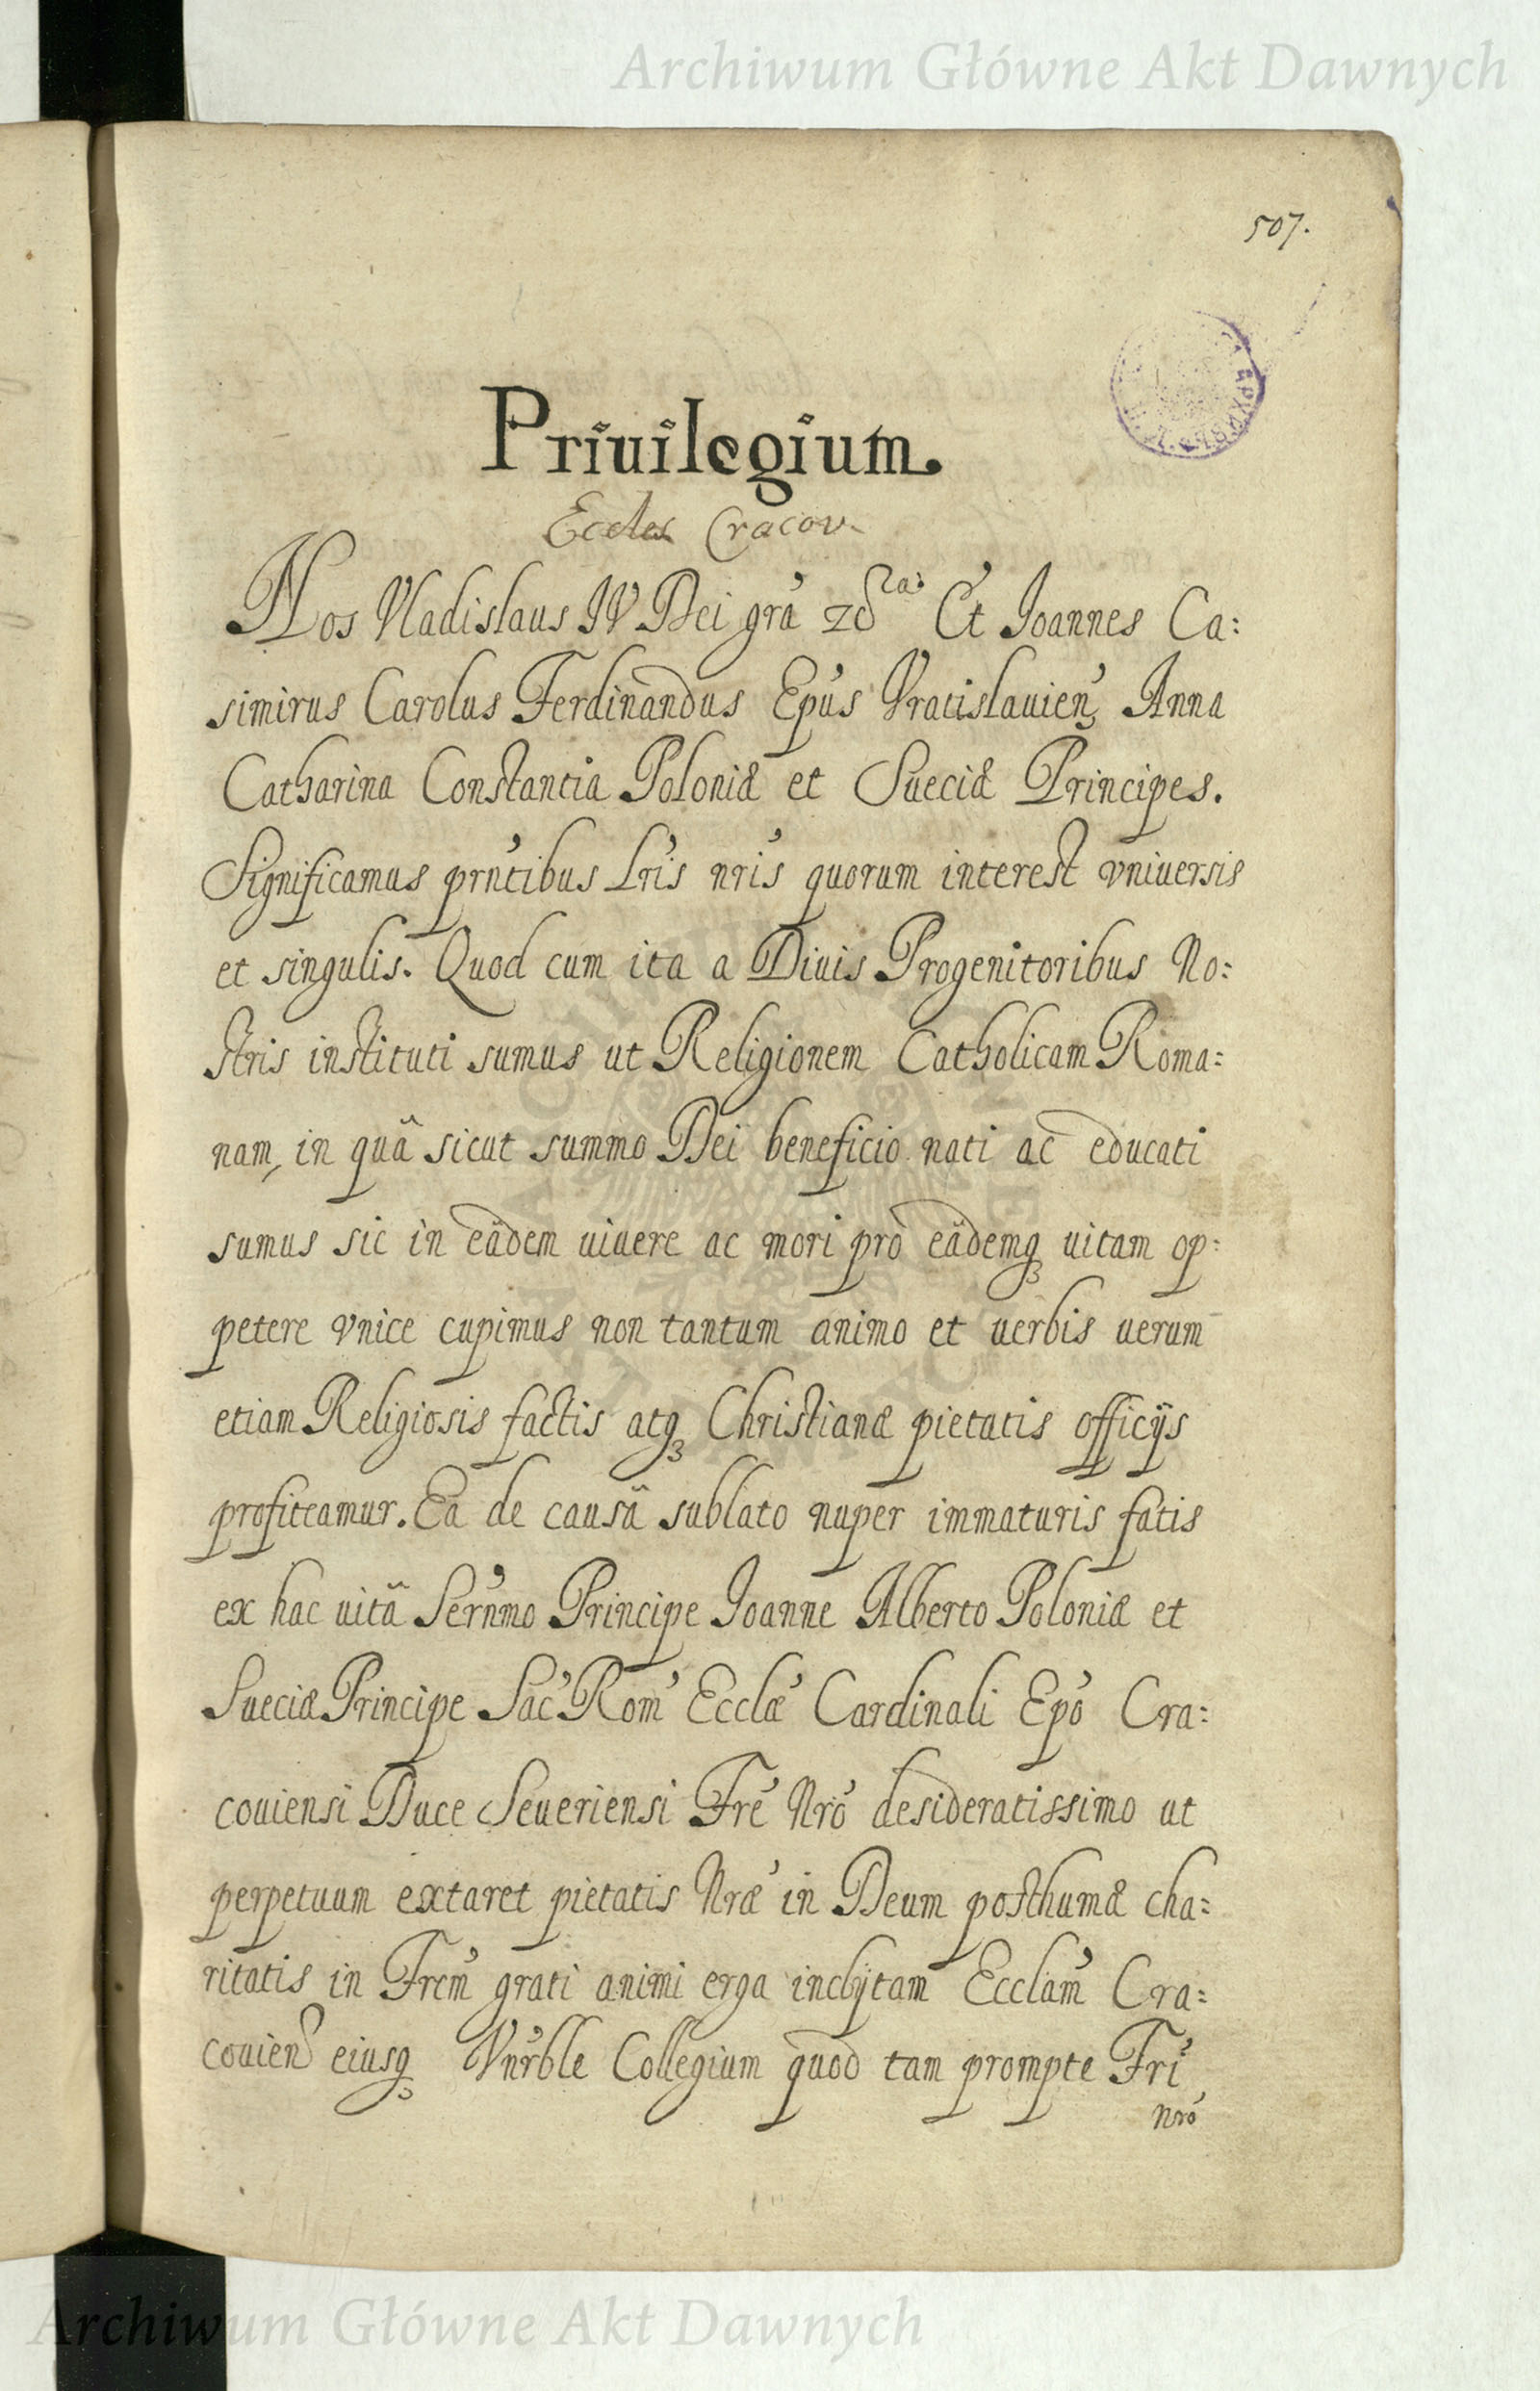 Archiwum Główne Akt Dawnych
507.
Priuilegium.
Eccles Cracov
Nos Vladislaus IV Dei grã Et Ioannes Ca:
simirus Carolus Ferdinandus Epũs Vratislauieñ Anna
Catharina Constantia Poloniæ et Sueciæ Principes.
Significamus prñtibus Lrĩs nrĩs quorum interest vniuersis
et singulis. Quod cum ita a Diuis Progenitoribus No:
stris instituti sumus ut Religionem Catholicam Roma:
nam, in quâ sicut summo Dei beneficio nati ac educati
sumus sic in eâdem uiuere ac mori pro eâdemq₃ uitam op:
petere vnice cupimus non tantum animo et uerbis uerum
etiam Religiosis factis atq₃ Christianæ pietatis officijs
profiteamur. Ea de causâ sublato nuper immaturis fatis
ex hac uitâ Serñmo Principe Ioanne Alberto Poloniæ et
Sueciæ Principe Sac̃ Rom̃ Ecclæ̃ Cardinali Epõ Cra:
couiensi Duce Seueriensi Frẽ Nrõ desideratissimo ut
perpetuum extaret pietatis Nræ̃ in Deum posthumæ cha:
ritatis in Frem̃ grati animi erga inclÿtam Ecclam̃ Cra:
couieñ eiusq₃ Vnr̃ble Collegium quod tam prompte Frĩ
Nrõ
Archiwum Główne Akt Dawnych